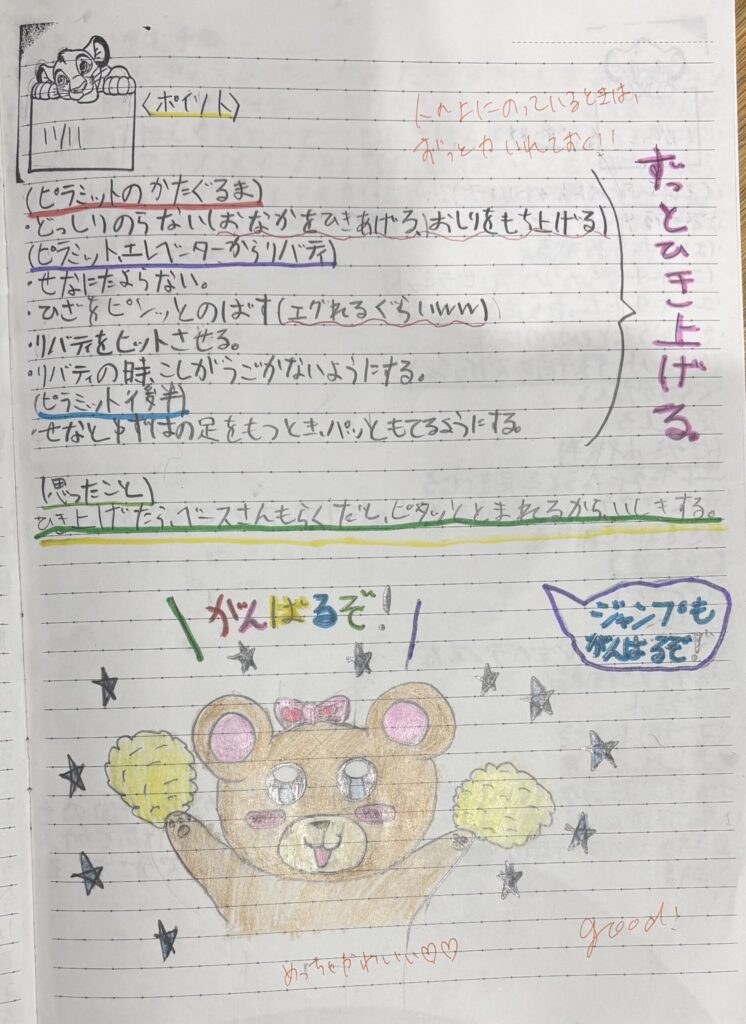 11/11
〈ポイント〉
人の上にのっているときは、
ずっと力いれておく!!
(ピラミットのかたぐるま)
・どっしりのらない(おなかをひきあげろ、おしりをもち上げる)
(ピラミット、エレベーターからリバティ)
・せなにたよらない。
・ひざをピンッとのばす(エグれるぐらいww)
・リバティをヒットさせる。
・リバティの時、こしがうごかないようにする。
(ピラミット後半)
・せなとゆずはの足をもつとき、パッともてるようにする。
ずっとひき上げる。
(思ったこと)
ひき上げたら、ベースさんもらくだし、ピタッととまれるから、いしきする。
がんばるぞ!
ジャンプも
がんばるぞ!
good!
めっちゃかわいい♡♡